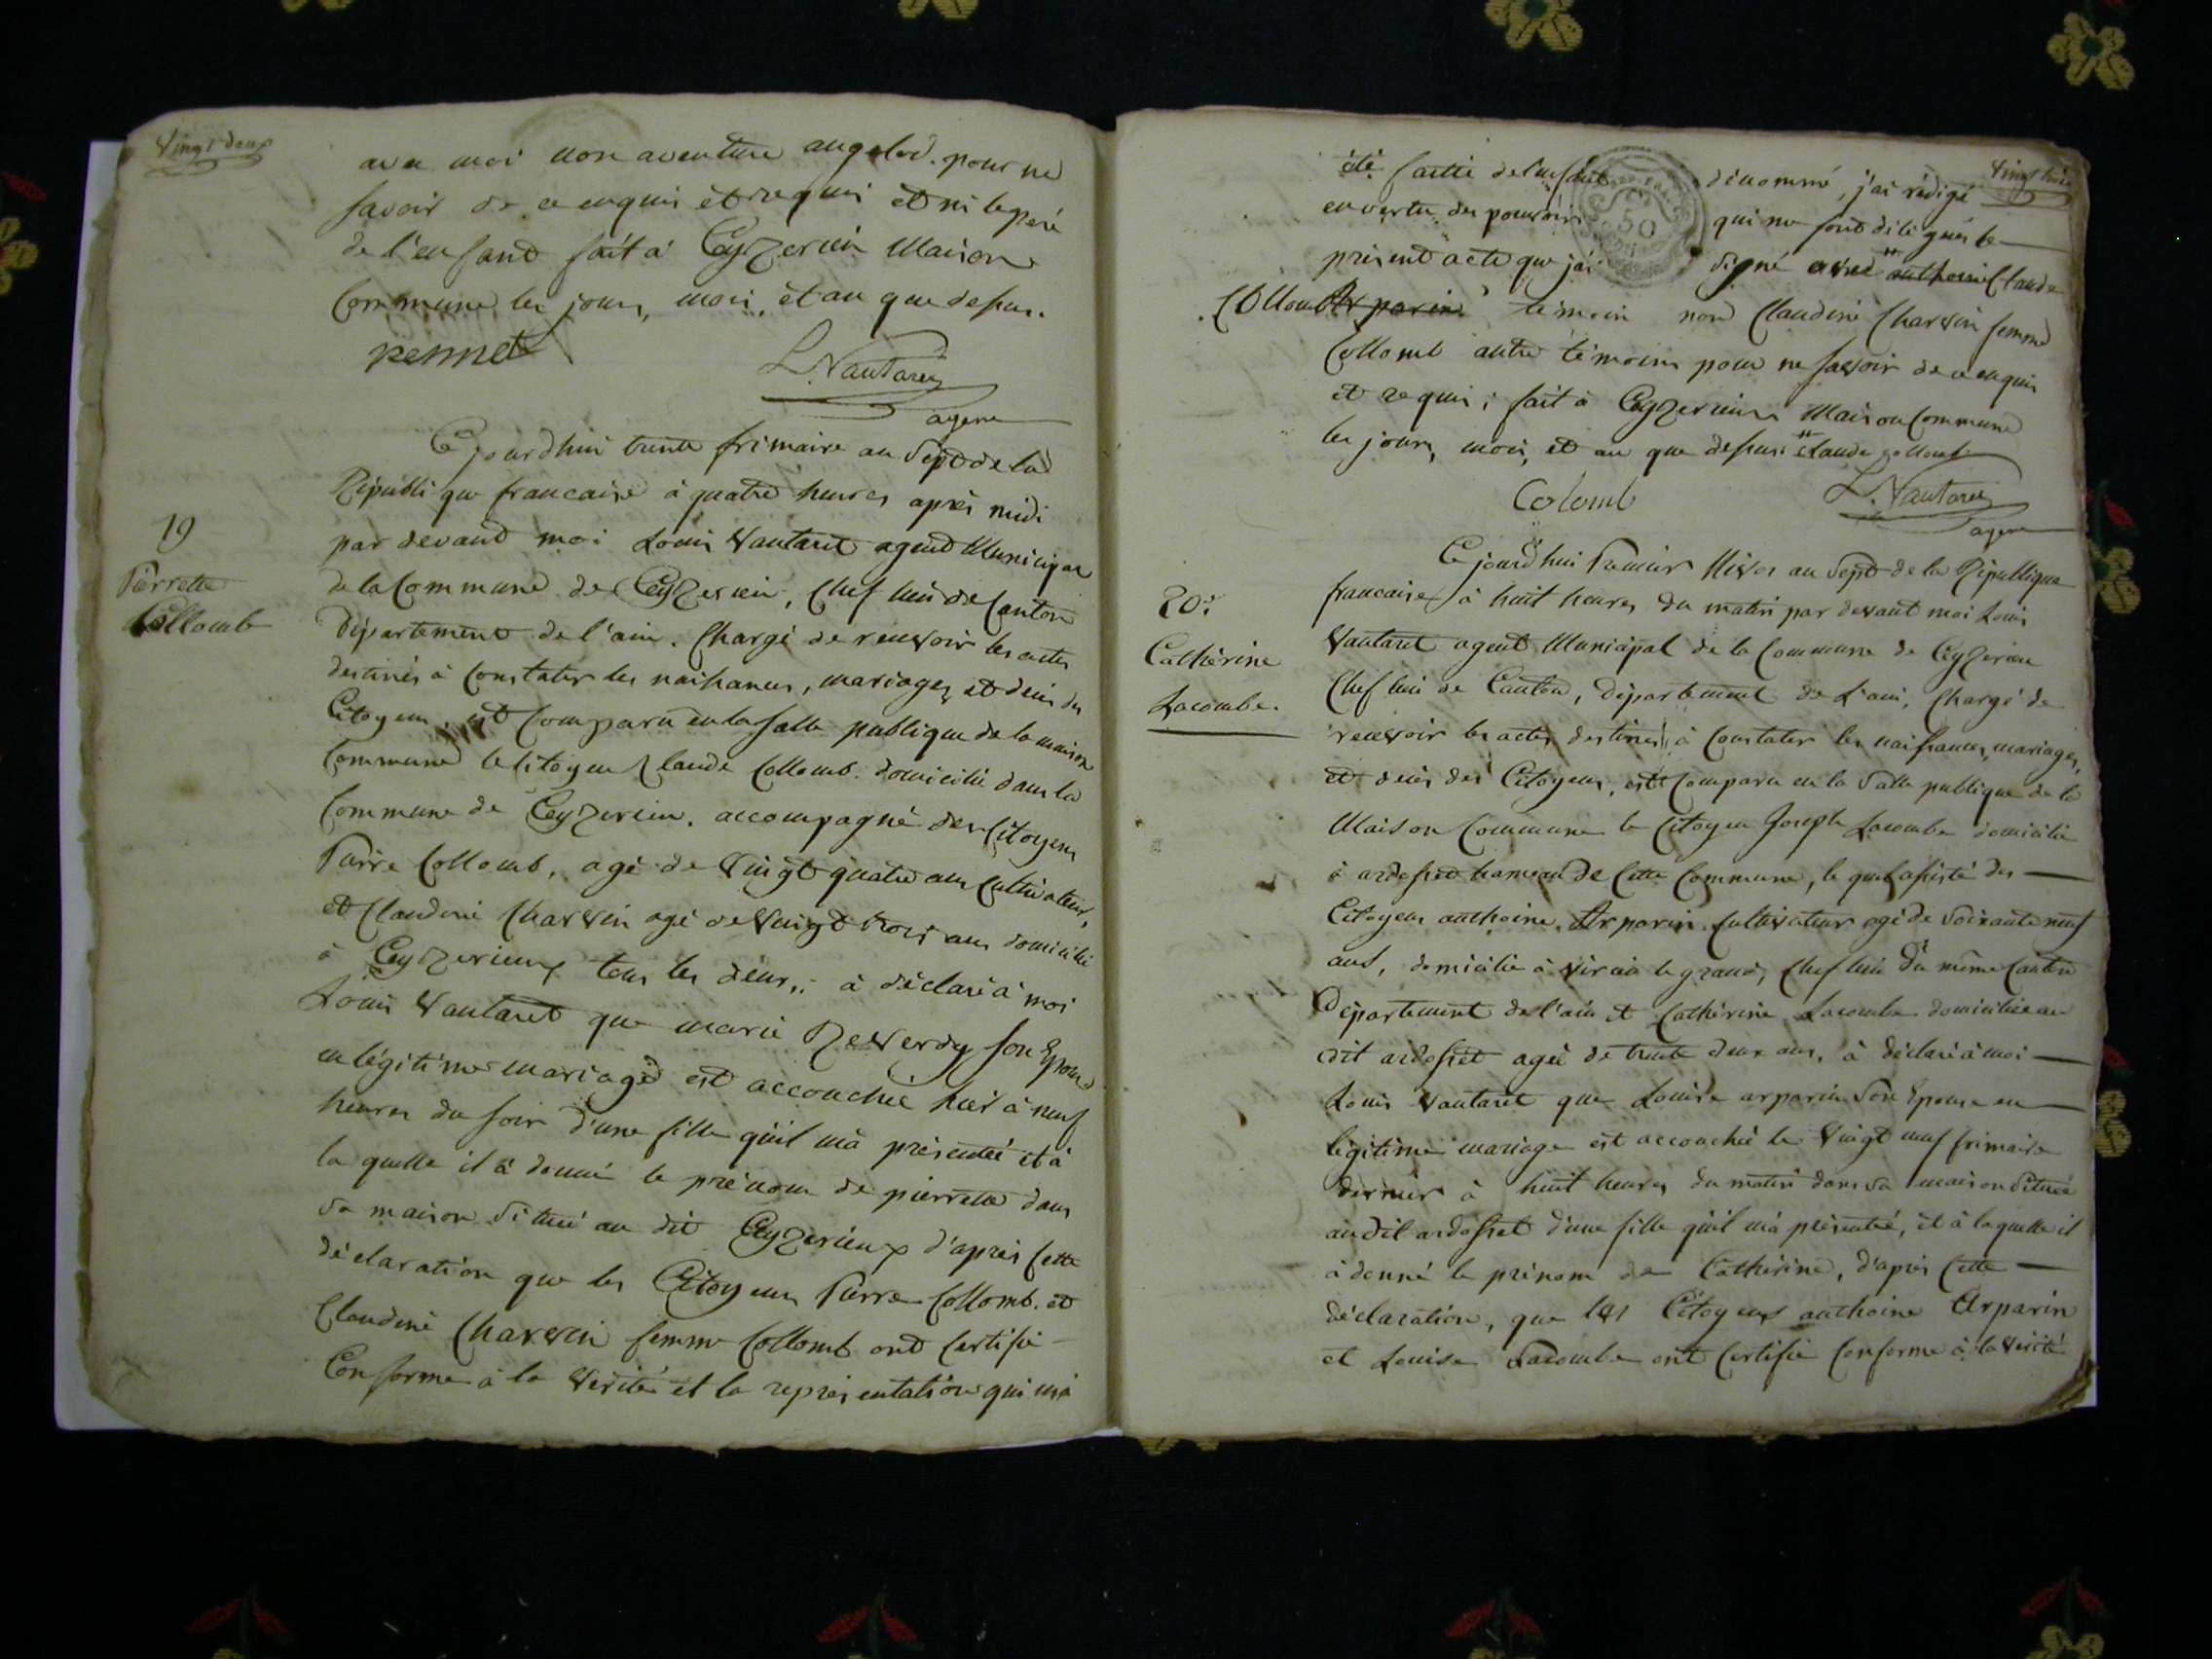 Vingt deux
avec moi non aventure angelod. pour ne
savoir de ce enquis et requis et ni le pere
de l'enfant fait à Ceyzerieu Maison
Commune les jours, mois, et an que dessus.
pennet
L. Vautaret
agent
Ce jourdhui trente frimaire an Sept de la
République francaise à quatre heures après midi
19
par devant moi Louis Vautaret agent Municipal
Pierrette
Collomb
de la Commune de Ceyzerieu, Chef lieu de Canton
Département de l'ain. Chargé de recevoir les actes
destinés à Constater les naissances, mariages et deces des
Citoyens, est Comparu en la salle publique de la maison
Commune le Citoyen Claude Collomb. domicilié dans la
Commune de Ceyzerieu. accompagné des Citoyens
Pierre Collomb, agé de Vingt quatre ans Cultivateur,
et Claudine Charvin agé de Vingt trois ans domicilié
à Ceyzerieux tous les deux, à déclaré à moi
Louis Vautaret que marie Reverdy son Epouse
en légitime mariage est accouchée hier à neuf
heures du soir d'une fille qu'il m'à présentée et à
la quelle il à donné le prénom de pierrette dans
sa maison Située au dit Ceyzerieux d'après Cette
déclaration que les Citoyens Pierre Collomb. et
Claudine Charvin femme Collomb ont Certifié
Conforme à la Verité et la représentation qui m'à
Vingt trois
été faitte de l'enfant dénommé, j'ai rédigé
en vertu des pouvoirs qui me sont délégués le
50
présent acte que j'ai Signé avec anthoine Claude
Collomb Arparin témoin non Claudine Charvin femme
Collomb autre témoins pour ne savoir de ce enquis
et requis; fait à Ceyzerieux Maison Commune
les jours, mois, et an que dessus Claude Collomb
Colomb
L. Vautaret
agent
Ce jourd'hui Premier Nivos an Sept de la République
20e
francaise à huit heures du matin par devant moi Louis
Catherine
Vautaret agent Municipal de la Commune de Ceyzerieu
Lacombe.
Chef lieu de Canton, Département de L'ain, Chargé de
recevoir les actes destinés à Constater les naissances, mariages,
et deces des Citoyens, est Comparu en la Salle publique de la
Maison Commune le Citoyen Joseph Lacombe domicilié
à ardosset hameau de Cette Commune, le quel assisté des
Citoyens anthoine Arparin Cultivateur agé de Soixante neuf
ans, domicilié à virieu le grand, Chef lieu du même Canton
Département de l'ain et Catherine Lacombe domiciliée au
dit ardosset agée de trente deux ans, à déclaré à moi
Louis Vautaret que Louise arparin Son Epouse en
légitime mariage est accouchée le Vingt neuf frimaire
dernier à huit heures du matin dans sa maison située
au dit ardosset d'une fille qu'il m'à présentée, et à laquelle il
à donné le prénom de Catherine, d'après Cette
déclaration, que les Citoyens anthoine Arparin
et Louise Lacombe ont Certifié Conforme à la Verité